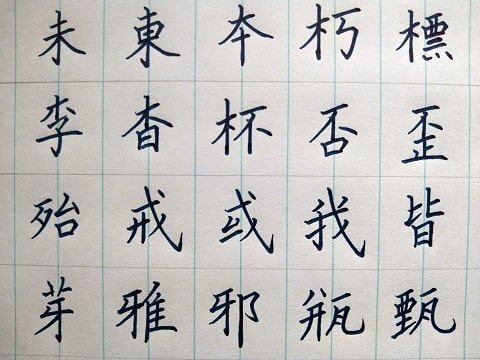 未東本朽標
李杳杯否歪
殆戒或我皆
芽雅邪瓶甄